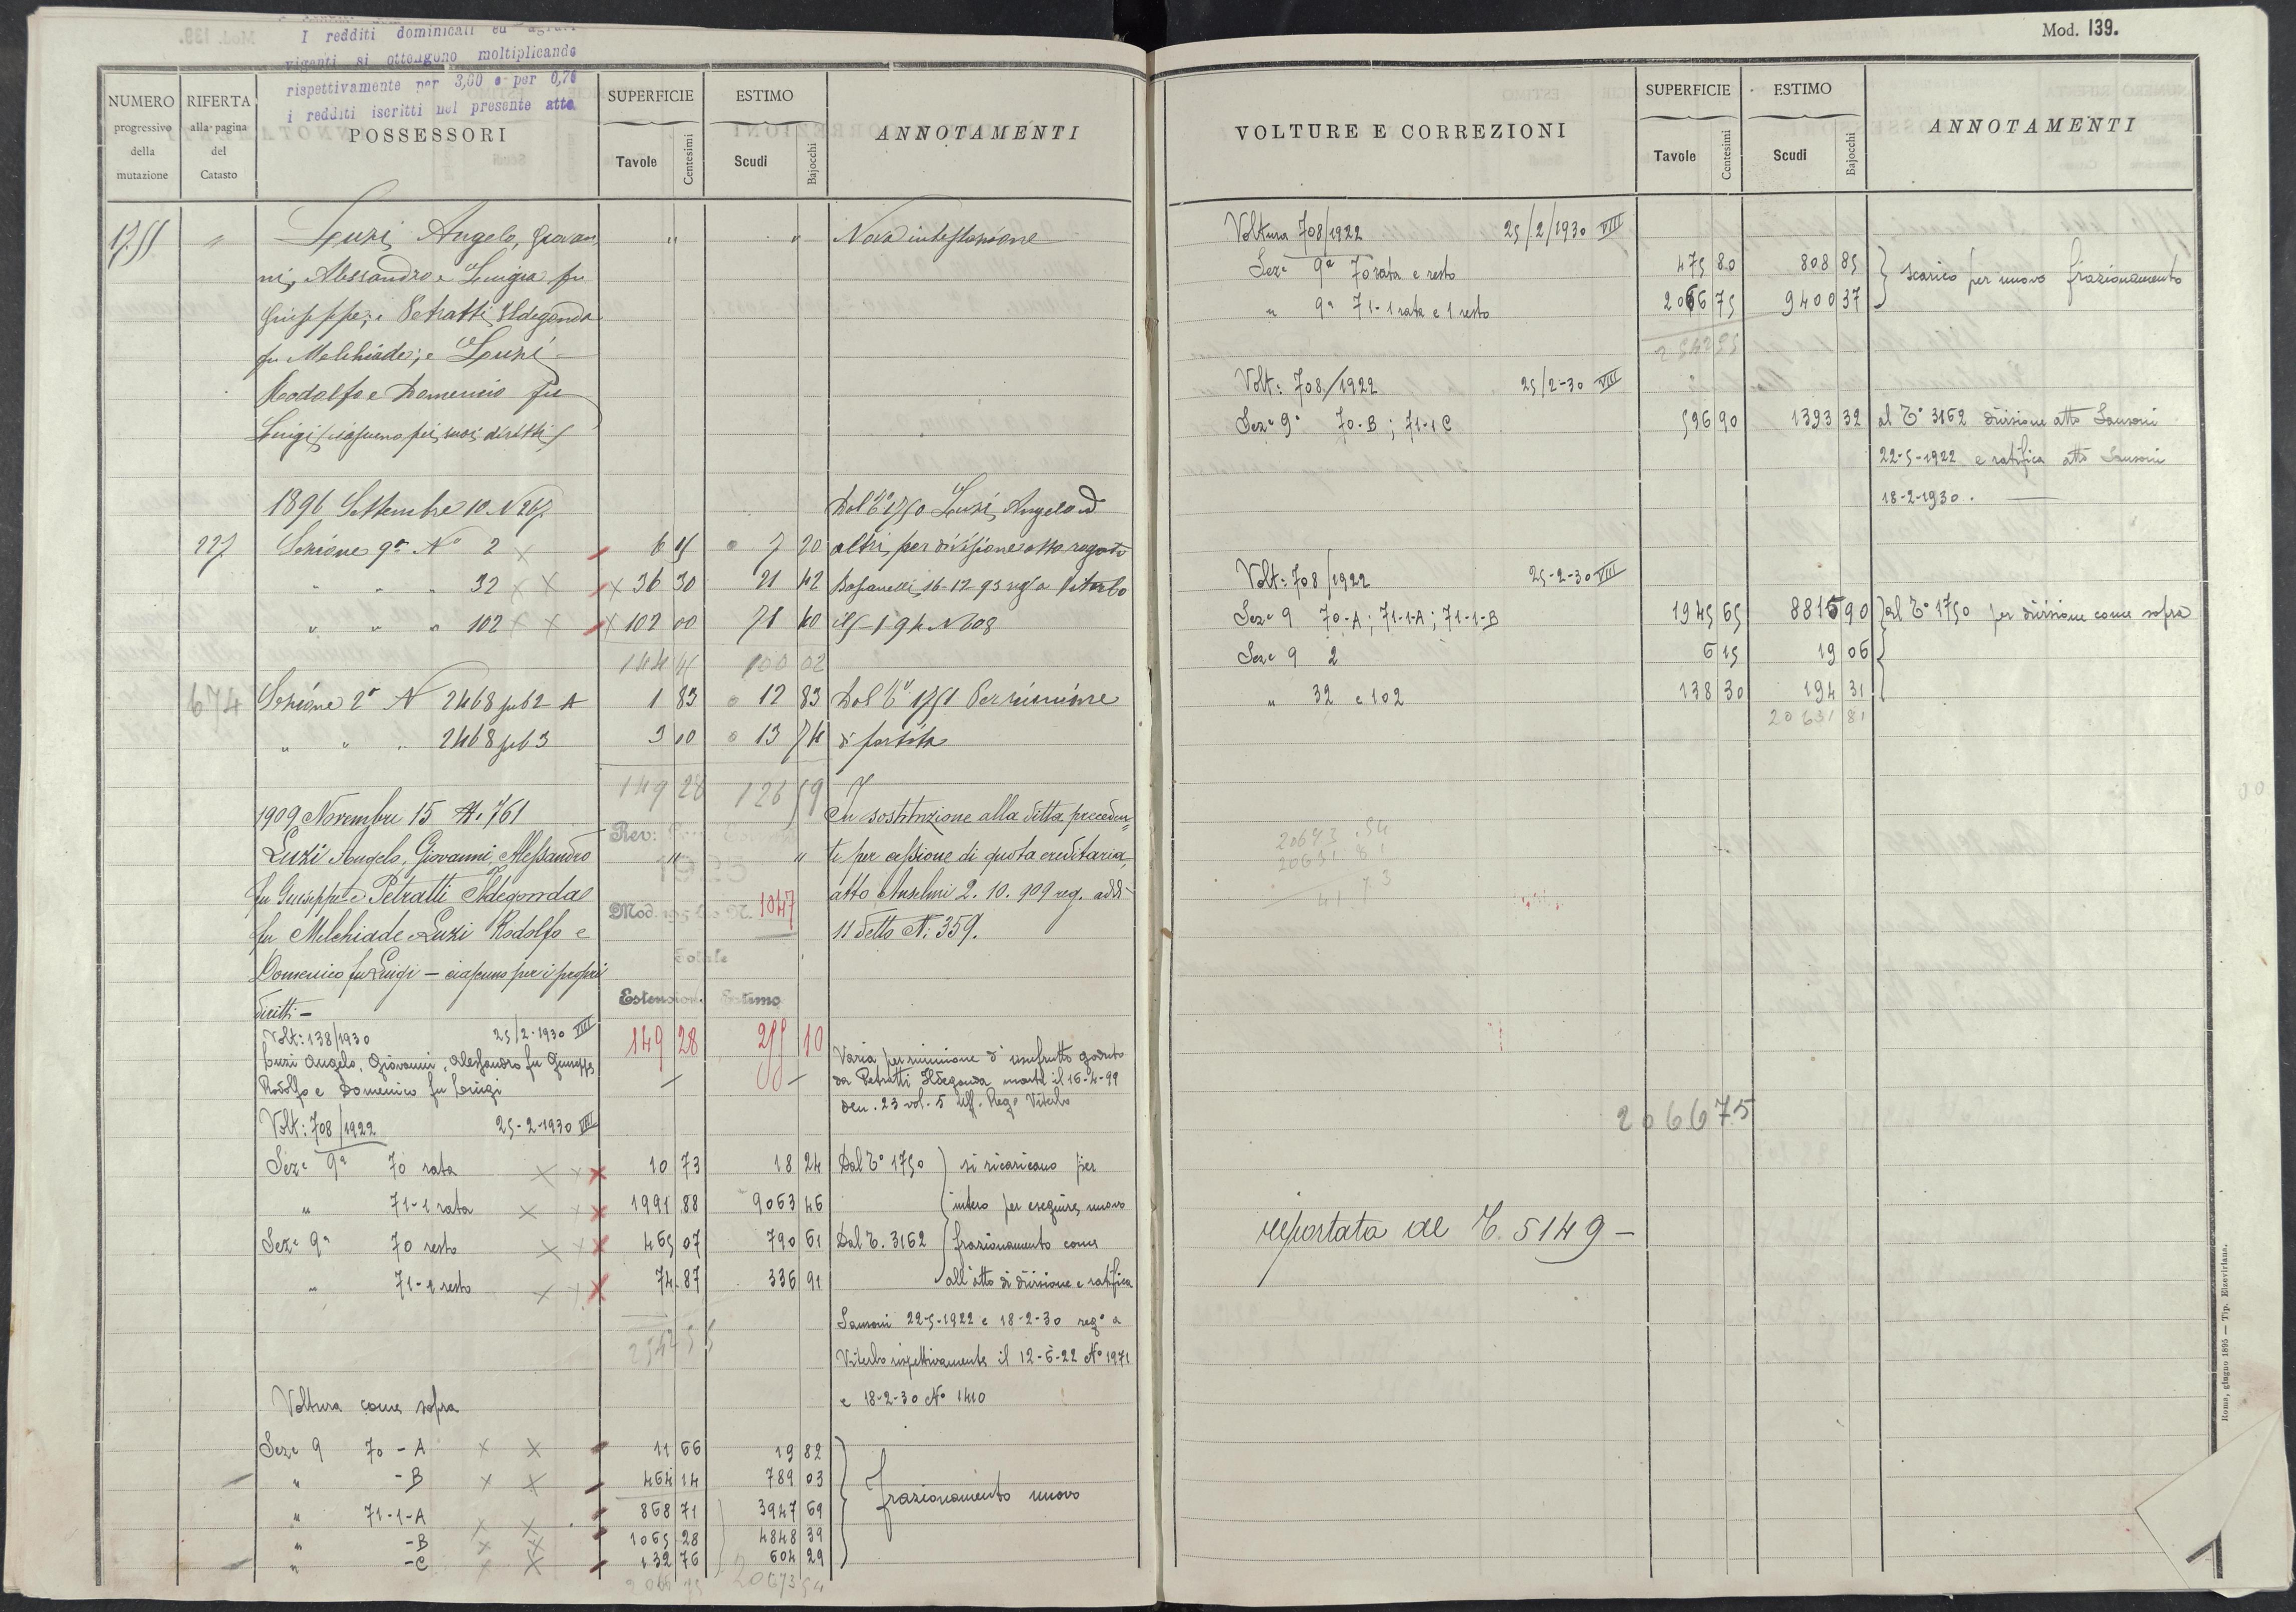 Mod. 139.
I redditi dominicali ed
vigenti si ottengono moltiplicando
rispettivamente per 3,60 e per 0,76
i redditi iscritti nel presente atto
NUMERO progressivo della mutazione
RIFERTA alla pagina del Catasto
POSSESSORI
SUPERFICIE
Tavole Centesimi
ESTIMO
Scudi Bajocchi
ANNOTAMENTI
1755 " Luzi Angelo, Giovan " " Nova intestazione
ni, Alessandro e Luigia fu
Giuseppe; e Petratti Ildegonda
fu Melchiade; e Luzi
Rodolfo e Domenico fu
Luigi (ciascuno pei suoi diritti)
1896 Settembre 10 N 267 Dal T° 1750 Luzi Angelo ed
227 Sezione 9ª N° 2 6 15 7 20 altri, per divisione atto rogato
" " " 32 36 30 21 42 16-12-93 reg a Viterbo
" " " 102 102 00 71 40 il 5-1-94 N 608
144 45 100 02
674 Sezione 2ª N 2468 sub 2 A 1 83 12 83 Dal T° 1751 Per riunione
" " " 2468 sub 3 3 00 13 74 di partita
149 28 126 59
1909 Novembre 15 N. 761 In sostituzione alla ditta preceden-
Luzi Angelo, Giovanni, Alessandro " " te per cessione di quota ereditaria,
fu Giuseppe e Petratti Ildegonda atto Anselmi 2.10.909 reg. addi
fu Melchiade Luzi Rodolfo e 11 detto N. 359.
Domenico fu Luigi – ciascuno per i propri
diritti –
Rev:
Mod. N. 1047
Totale
Estensione Estimo
149 28 255 10
Volt: 138/1930 25/2-1930 VIII
Luzi Angelo, Giovanni, Alessandro fu Giuseppe
Rodolfo e Domenico fu Luigi
Varia per riunione d'usufrutto goduto
da Petratti Ildegonda morta il 16-4-99
den. 23 vol. 5 Uff. Reg° Viterbo
Volt: 708/1922 25-2-1930 VIII
Sez.e 9ª 70 rata 10 73 18 24 Dal T° 1750 si ricaricano per
" 71-1 rata 1991 88 9063 46 intero per eseguire nuovo
Sez.e 9ª 70 resto 465 07 790 61 Dal T. 3162 frazionamento come
" 71-1 resto 74 87 336 91 all'atto di divisione e ratifica
Sansoni 22-5-1922 e 18-2-30 reg° a
2542 55 Viterbo rispettivamente il 12-6-22 N° 1971
e 18-2-30 N° 1410
Voltura come sopra
Sez.e 9 70 - A 11 66 19 82
" - B 464 14 789 03
" 71-1-A 868 71 3947 69 frazionamento nuovo
" - B 1065 28 4848 39
" - C 132 76 604 29
2066 75 20673 54
VOLTURE E CORREZIONI
SUPERFICIE
Tavole Centesimi
ESTIMO
Scudi Bajocchi
ANNOTAMENTI
Voltura 708/1922 25/2/1930 VIII
Sez.e 9ª 70 rata e resto 475 80 808 85 scarico per nuovo frazionamento
" 9ª 71-1 rata e 1 resto 2066 75 9400 37
2542 55
Volt: 708/1922 25/2-30 VIII
Sez.e 9ª 70-B; 71-1 C 596 90 1393 32 al T° 3162 divisione atto Sansoni
22-5-1922 e ratifica atto Sansoni
18-2-1930.
Volt: 708/1922 25-2-30 VIII
Sez.e 9 70-A; 71-1-A; 71-1-B 1945 65 8815 90 al T° 1750 per divisione come sopra
Sez.e 9 2 6 15 19 06
" 32 e 102 138 30 194 31
20631 81
20673.54
20631.81
41 73
206675
riportata al T. 5149 –
Roma, giugno 1895 — Tip. Elzeviriana.